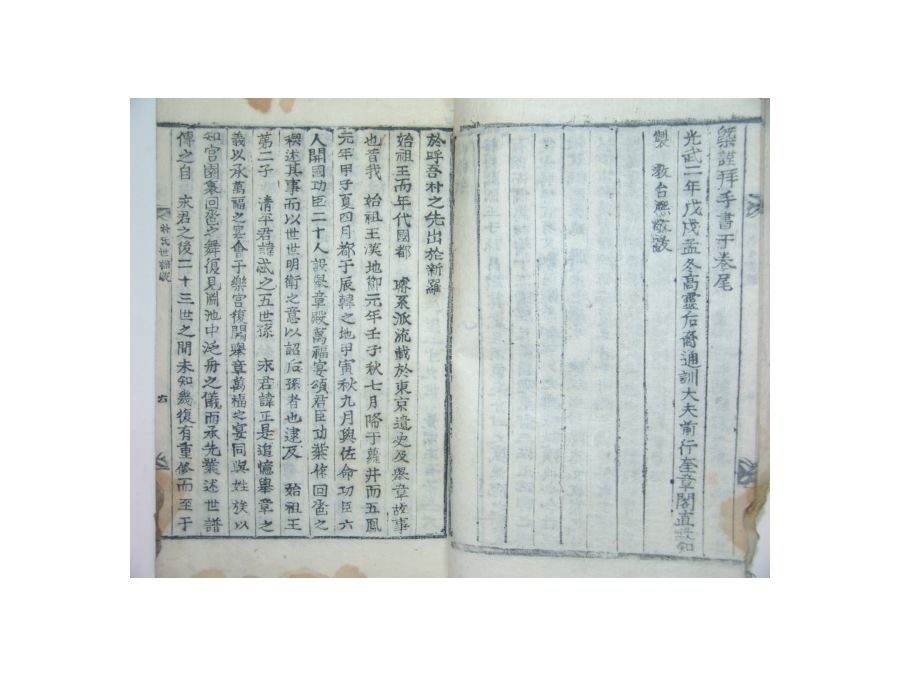 槩謹拜手書于卷尾
光武二年戊戌孟冬高靈后裔通訓大夫前行奎章閣直
製 教台熙敬跋
於呼吾朴之先出於新羅
始祖王而年代國都 璿系派流載於東京遺史及擧章故事
也昔我 始祖王漢地節元年壬子秋七月降于蘿井而五鳳
元年甲子夏四月都于辰韓之地甲寅秋九月與佐命功臣六
人開國功臣二十人設擧章殿萬福宴頌君臣功業作回沓之
稧述其事而以世世明衛之意以詔后孫者也逮及 始祖王
苐二子 淸平君諱忒之五世孫 求君諱正是追憶擧章之
義以承萬福之宴會于樂宮復開擧章萬福之宴同與姓族以
知宮園裏回沓之舞復見凋池中泛舟之儀而承先業述世譜
傳之自 求君之後二十三世之間未知幾復有重修而至于
朴氏世譜跋
六